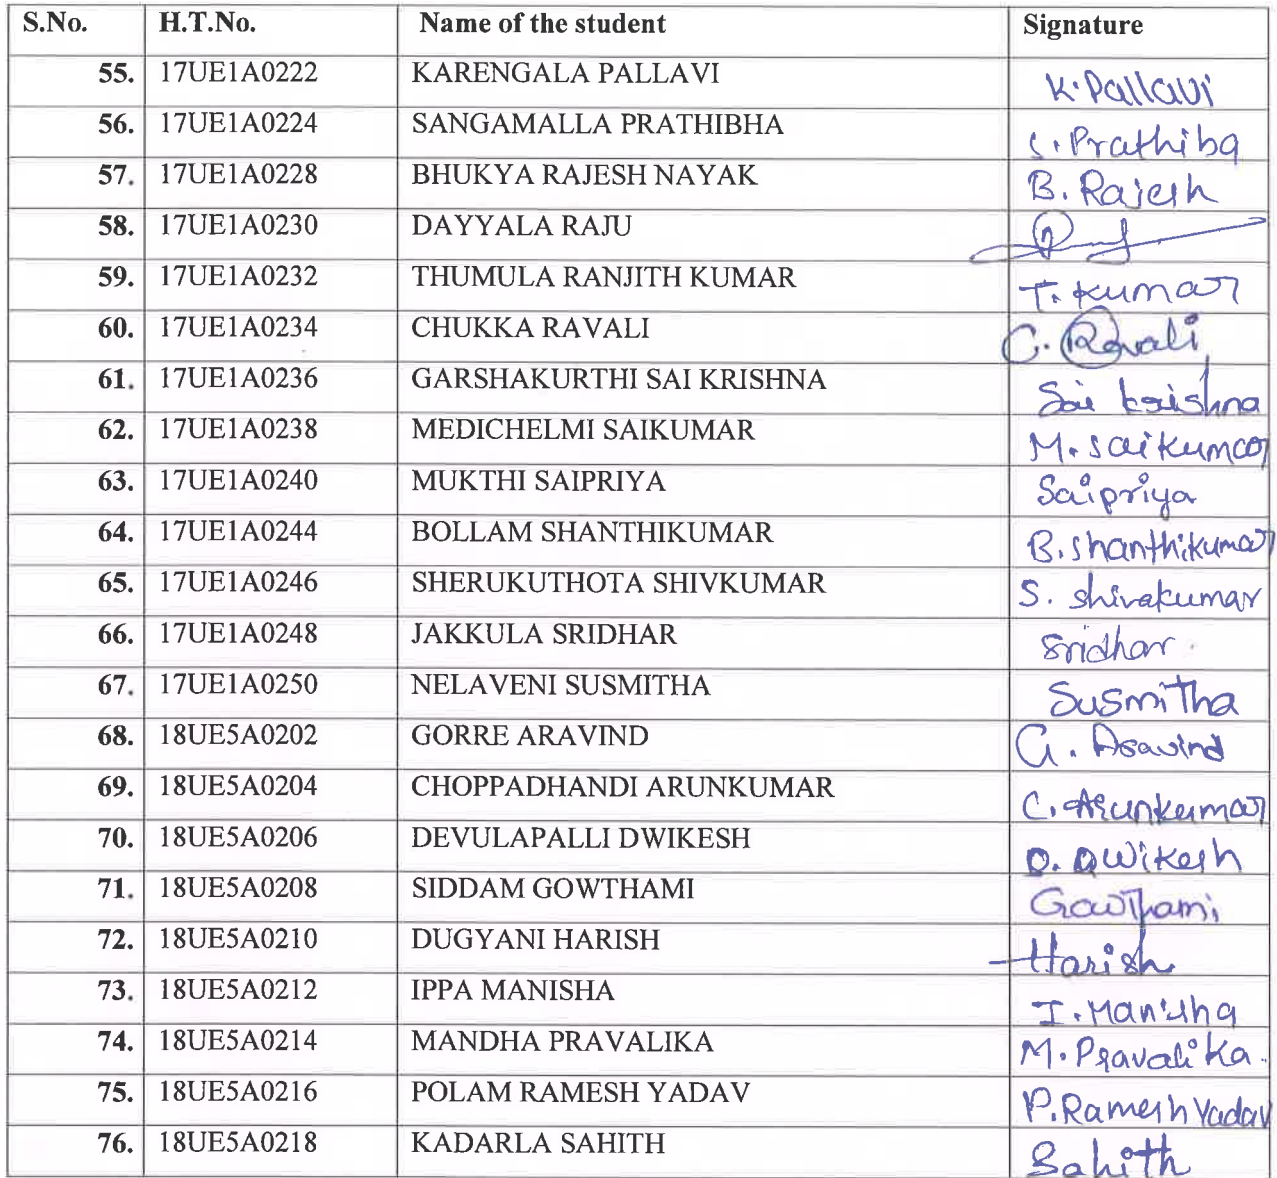 S.No. H.T.No. Name of the student Signature
55. 17UE1A0222 KARENGALA PALLAVI K. Pallavi
56. 17UE1A0224 SANGAMALLA PRATHIBHA S. Prathiba
57. 17UE1A0228 BHUKYA RAJESH NAYAK B. Rajesh
58. 17UE1A0230 DAYYALA RAJU
59. 17UE1A0232 THUMULA RANJITH KUMAR T. Kumar
60. 17UE1A0234 CHUKKA RAVALI C. Ravali
61. 17UE1A0236 GARSHAKURTHI SAI KRISHNA Sai krishna
62. 17UE1A0238 MEDICHELMI SAIKUMAR M. saikumar
63. 17UE1A0240 MUKTHI SAIPRIYA Saipriya
64. 17UE1A0244 BOLLAM SHANTHIKUMAR B. shanthikumar
65. 17UE1A0246 SHERUKUTHOTA SHIVKUMAR S. shivakumar
66. 17UE1A0248 JAKKULA SRIDHAR Sridhar.
67. 17UE1A0250 NELAVENI SUSMITHA Susmitha
68. 18UE5A0202 GORRE ARAVIND G. Aravind
69. 18UE5A0204 CHOPPADHANDI ARUNKUMAR C. Arunkumar
70. 18UE5A0206 DEVULAPALLI DWIKESH D. Dwikesh
71. 18UE5A0208 SIDDAM GOWTHAMI Gowthami
72. 18UE5A0210 DUGYANI HARISH Harish
73. 18UE5A0212 IPPA MANISHA I. Manisha
74. 18UE5A0214 MANDHA PRAVALIKA M. Pravalika.
75. 18UE5A0216 POLAM RAMESH YADAV P. Ramesh Yadav
76. 18UE5A0218 KADARLA SAHITH Sahith